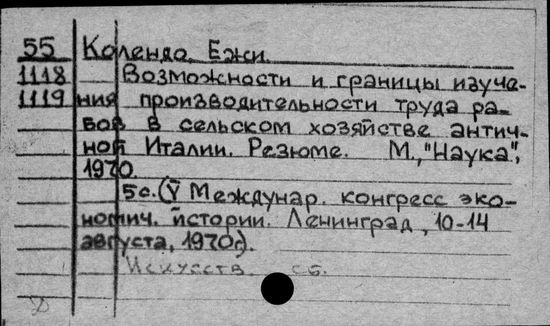 55 Колендо, Ежи.
1118 Возможности и границы изуче-
1119 ния производительности труда ра-
бов в сельском хозяйстве антич-
ной Италии. Резюме. М., "Наука",
1970.
5 с. (V Междунар. конгресс эко-
номич. истории. Ленинград, 10-14
августа, 1970г).
Искусств. сб.